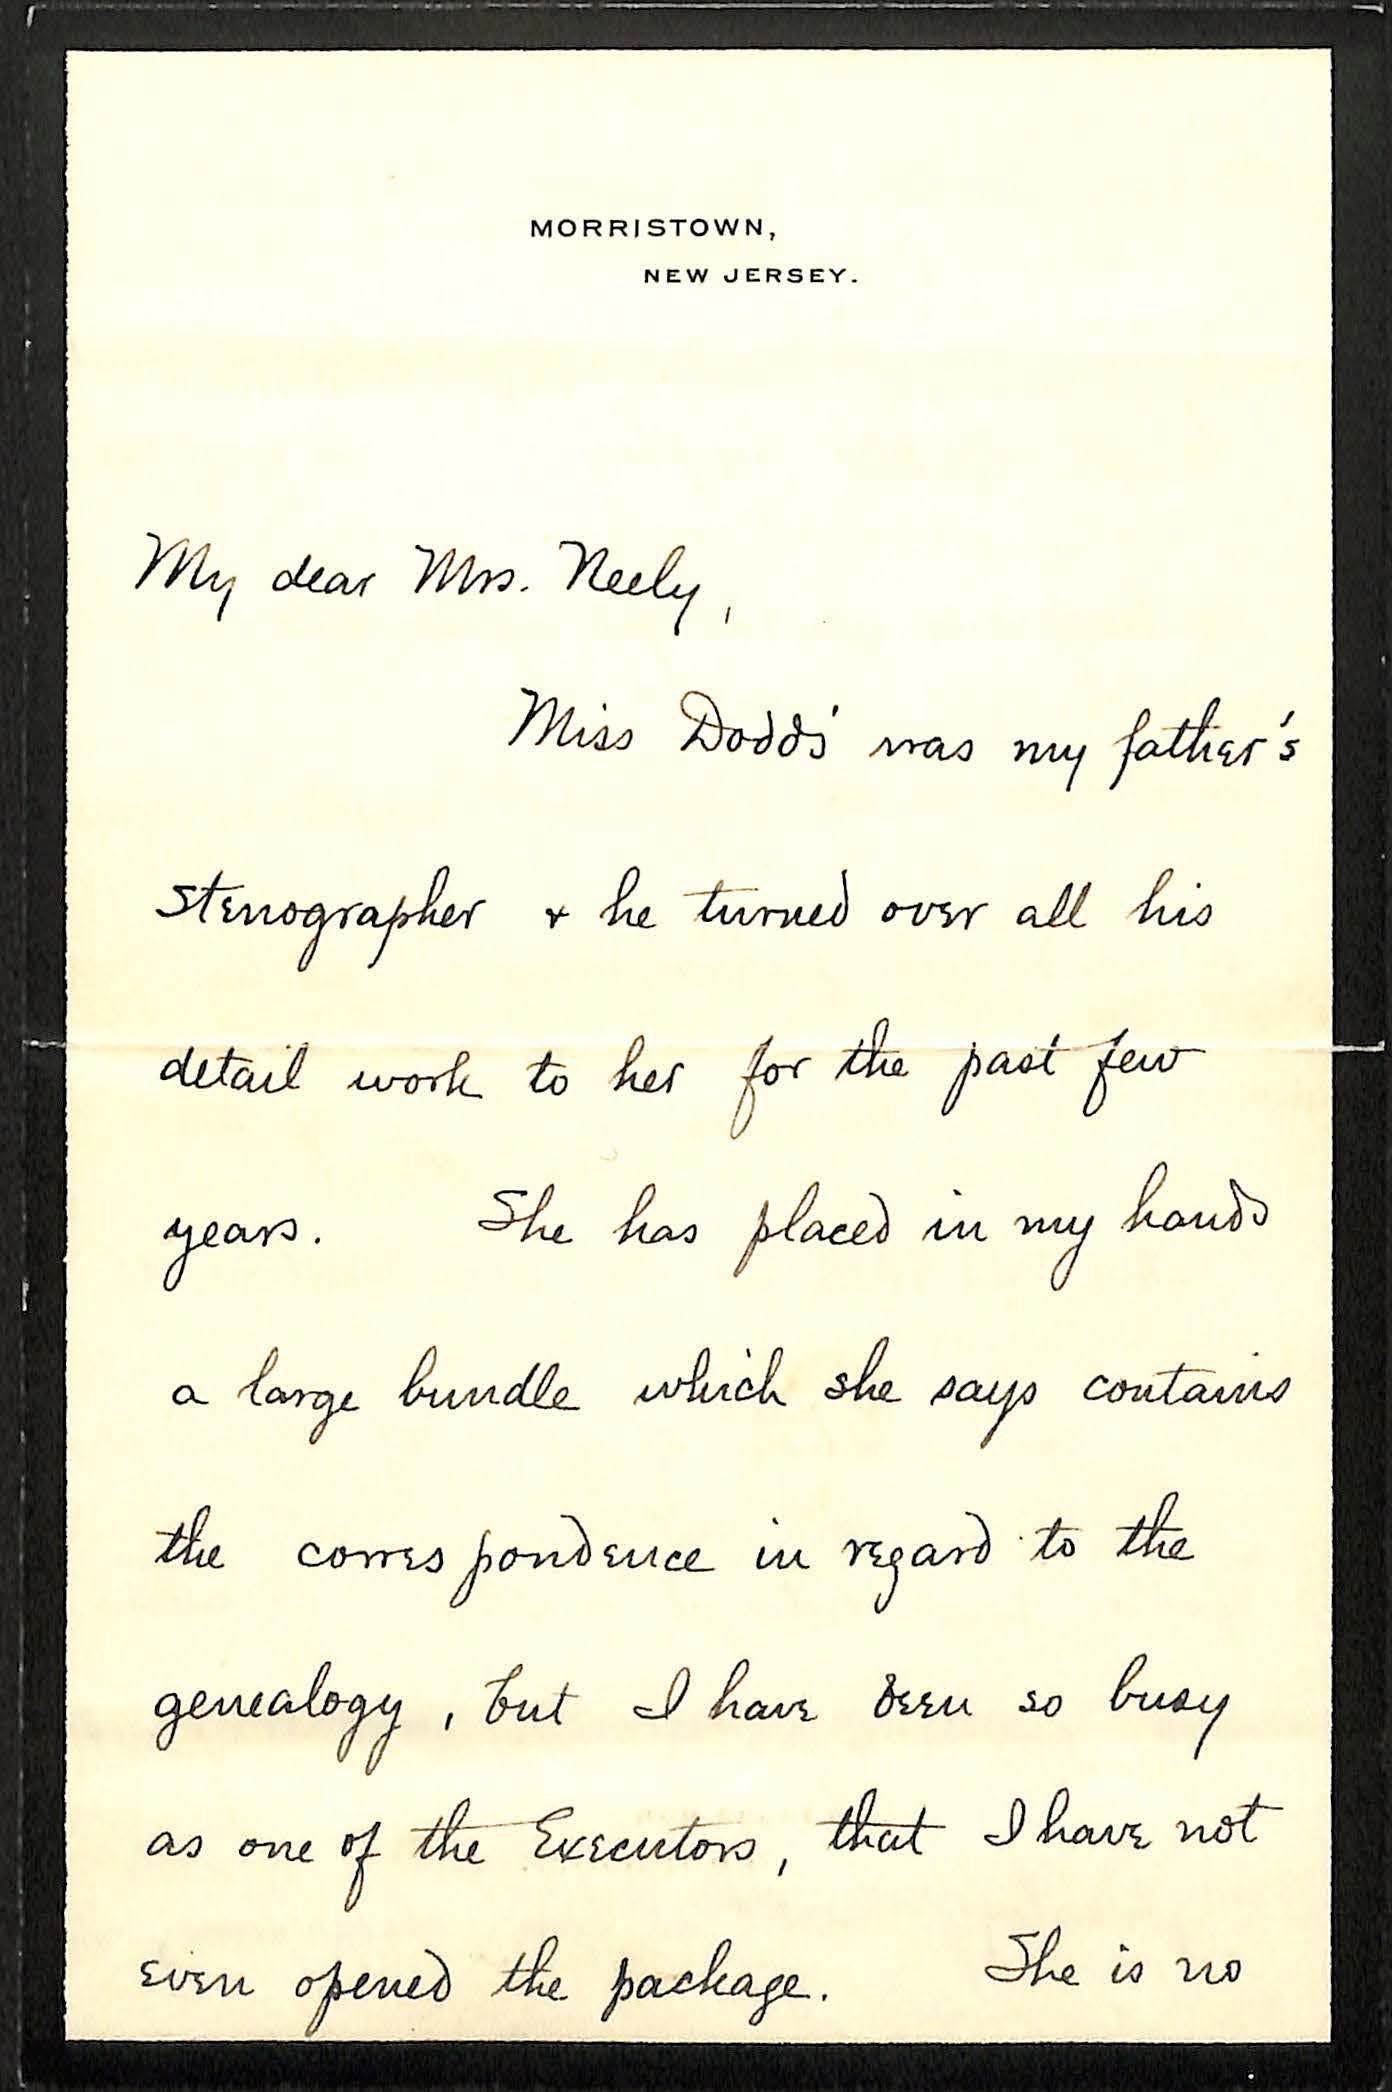 MORRISTOWN,
NEW JERSEY.
My dear Mrs. Neely,
Miss Dodds' was my father's
stenographer + he turned over all his
detail work to her for the past few
years. She has placed in my hands
a large bundle which she says contains
the correspondence in regard to the
genealogy, but I have been so busy
as one of the Executors, that I have not
even opened the package. She is no